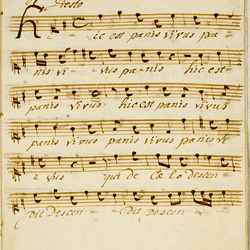 Presto
Hic est panis vivus pa
nis vi - vus pa-nis hic est
panis vivus hic est panis vivus
panis vivus panis vivus panis vi
- vus qui de Cę lo descen
dit descen - dit descen